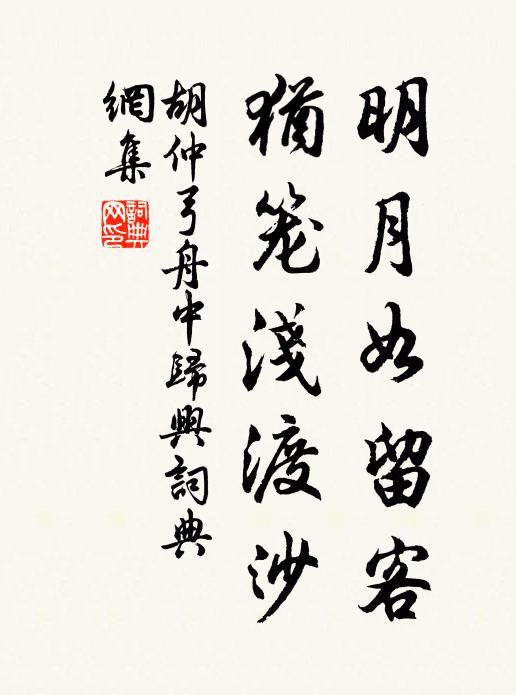 明月如留客
猶笼淺渡沙
胡仲弓舟中歸興詞典
網集
詞典
网印